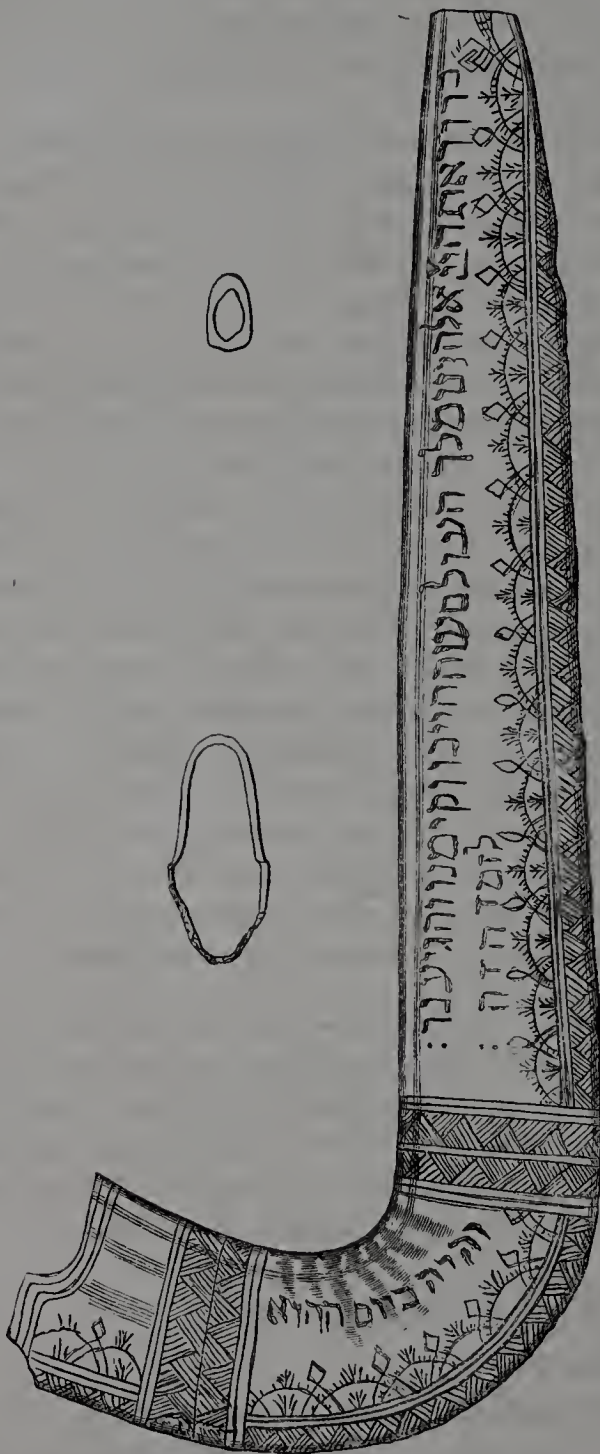 ברוך אתה יי אלהינו מלך העולם שהחיינו וקימנו והגיענו:
לזמן הזה:
והיה ביום ההוא